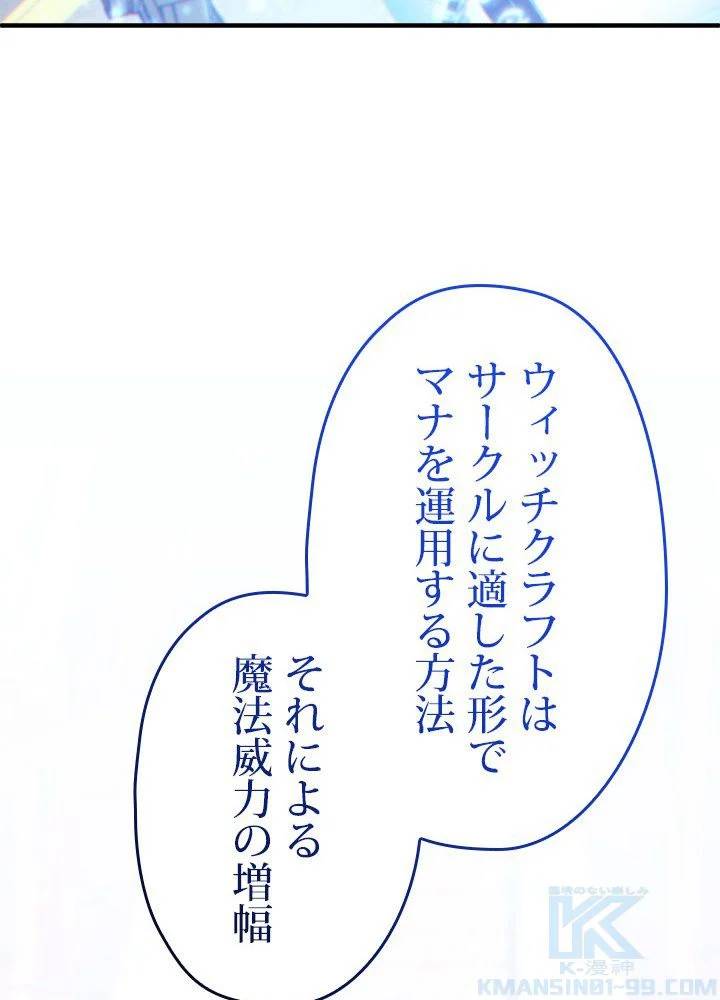 ウィッチクラフトは
サークルに適した形で
マナを運用する方法
それによる
魔法威力の増幅
臨場のない楽しみ
K-漫神
KMANSIN01-99.COM